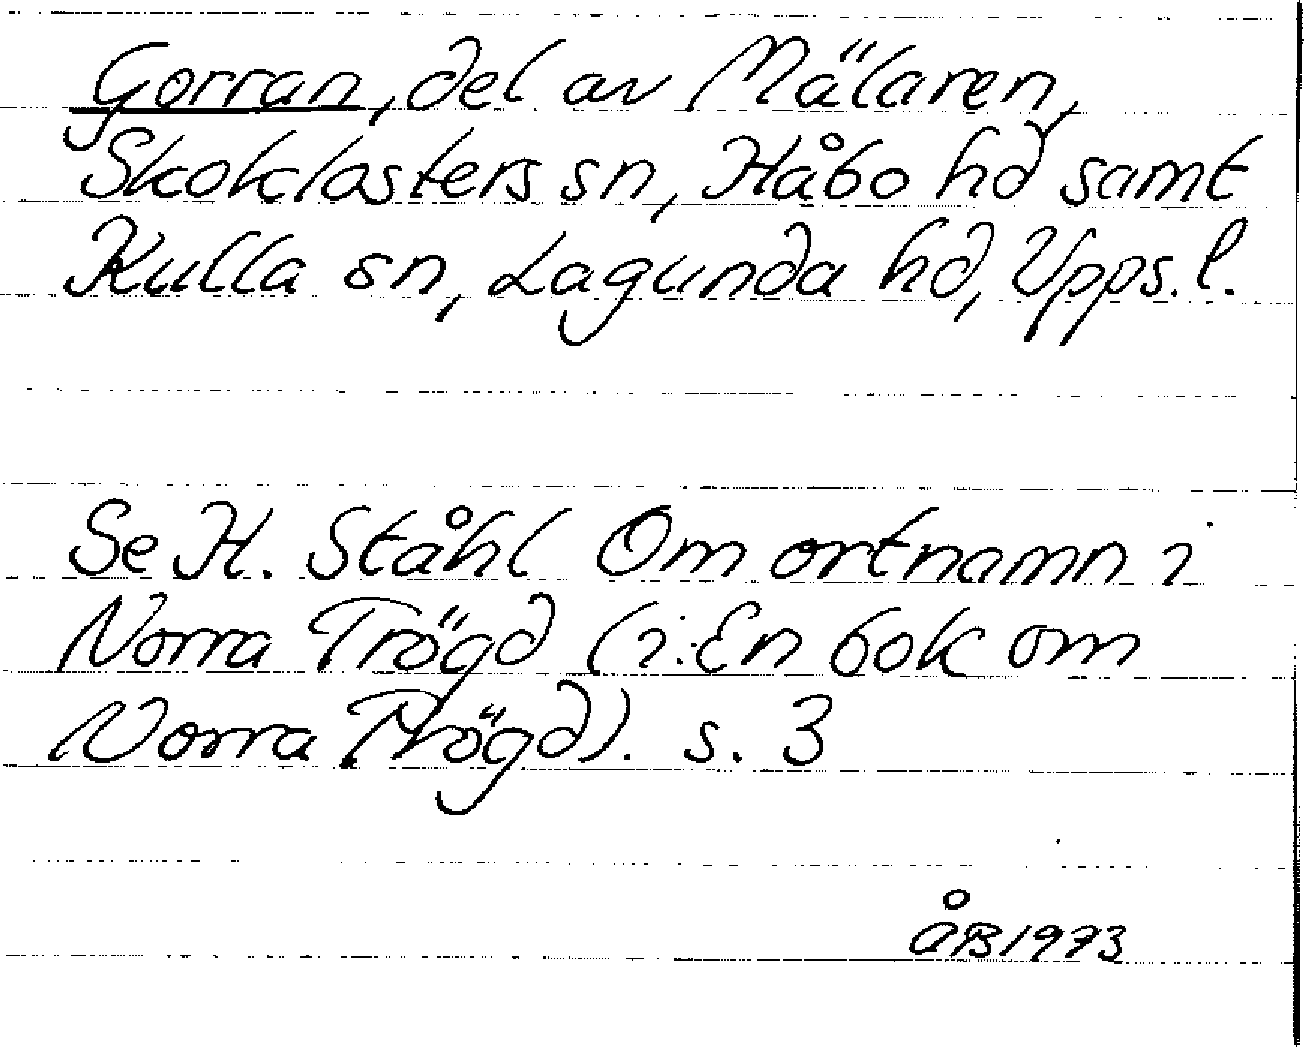 Gorran, del av Mälaren,
Skoklosters sn, Håbo hd samt
Kulla sn, Lagunda hd, Upps. l.
Se H. Ståhl Om ortnamn i
Norra Trögd (i: En bok om
Norra Trögd). s. 3
ÅB 1973